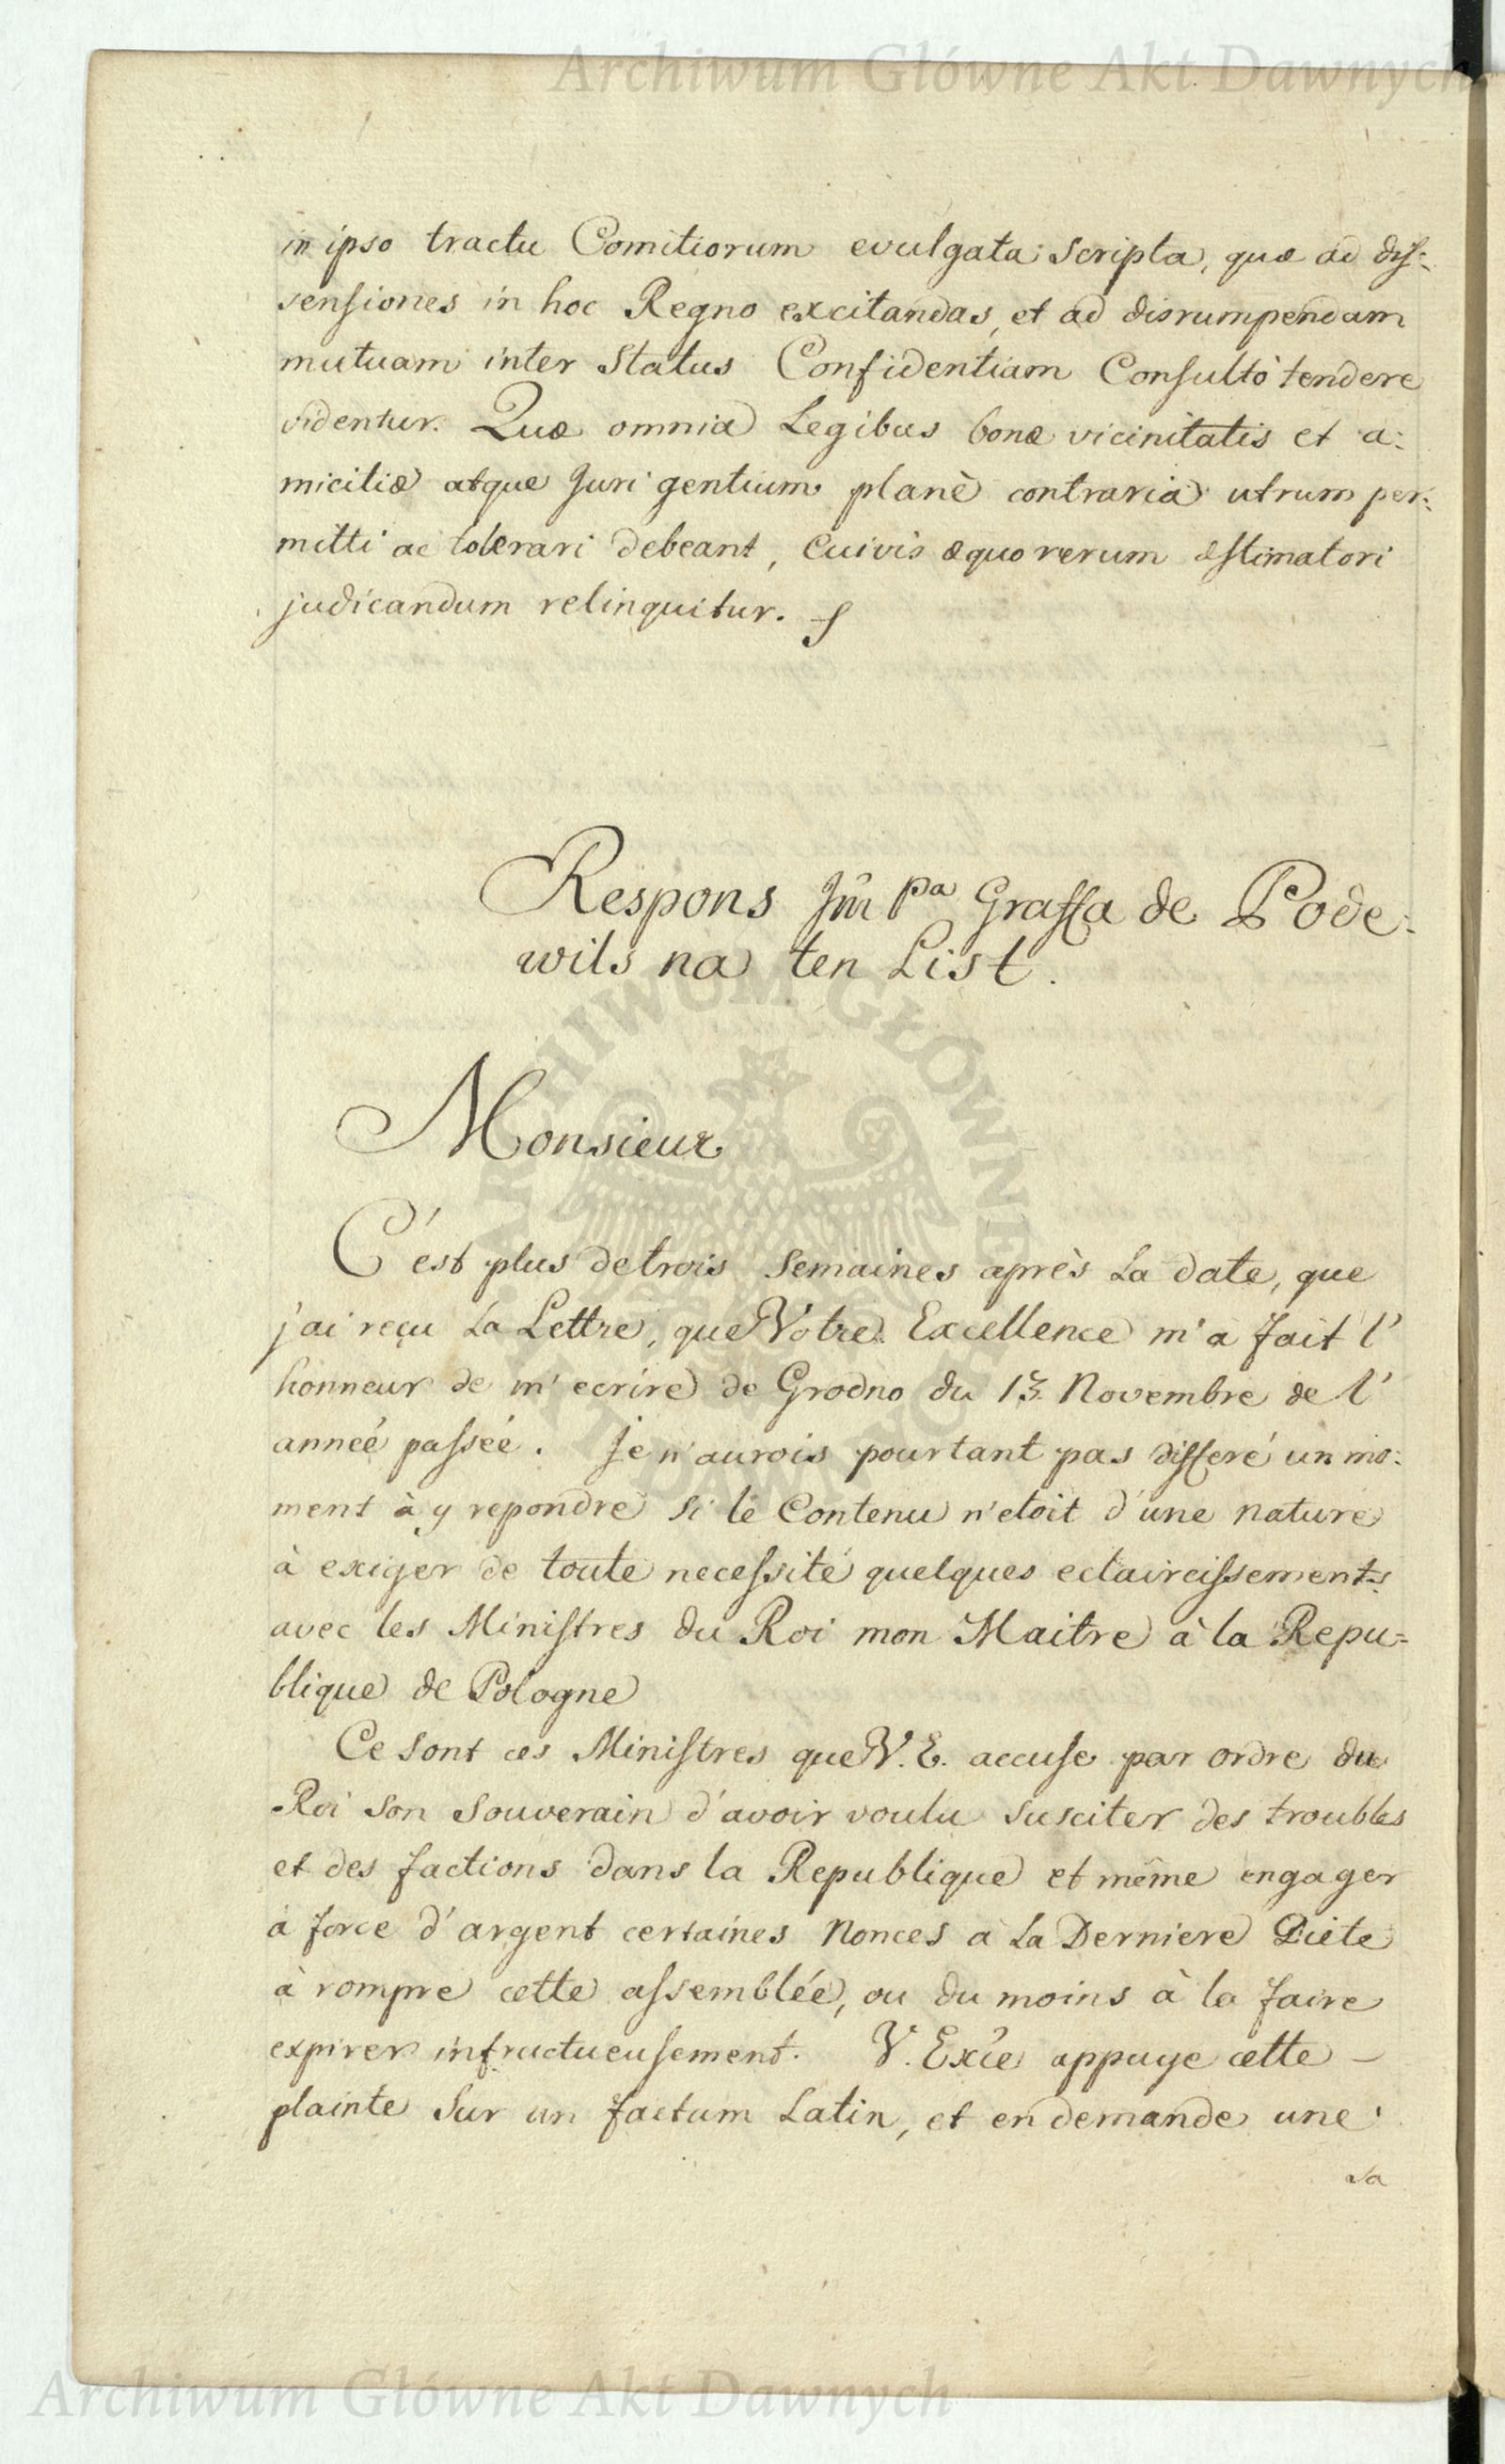 Archiwum Główne Akt Dawnych
in ipso tractu Comitiorum evulgata scripta, quæ ad dis:
sensiones in hoc Regno excitandas, et ad disrumpendam
mutuam inter Status Confidentiam Consultò tendere
videntur. Quæ omnia Legibus bonæ vicinitatis et a:
micitiæ atque Juri gentium planè contraria utrum per:
mitti ac tolerari debeant, Cuivis æquo rerum æstimatori
judicandum relinquitur.
Respons Jm̃ Pa Graffa de Pode:
wils na ten List.
Monsieur
C'est plus de trois Semaines après La date, que
j'ai reçu La Lettre, que Votre Excellence m'a fait l'
honneur de m'ecrire de Grodno du 13. Novembre de l'
anneé passeé. Je n'aurois pourtant pas differé un mo:
ment à y repondre si le Contenu n'etoit d'une nature
à exiger de toute necessité quelques eclaircissements
avec les Ministres du Roi mon Maitre à la Repu=
blique de Pologne
Ce sont ces Ministres que V. E. accuse par ordre du
Roi son Souverain d'avoir voulu susciter des troubles
et des factions dans la Republique et même engager
a force d'argent certaines Nonces a La Derniere Diete
à rompre cette assemblée, ou du moins à la faire
expirer infructueusement. V. Exc̃e appuye cette –
plainte Sur un factum Latin, et en demande une
sa
ARCHIWUM GŁÓWNE AKT DAWNYCH
Archiwum Główne Akt Dawnych